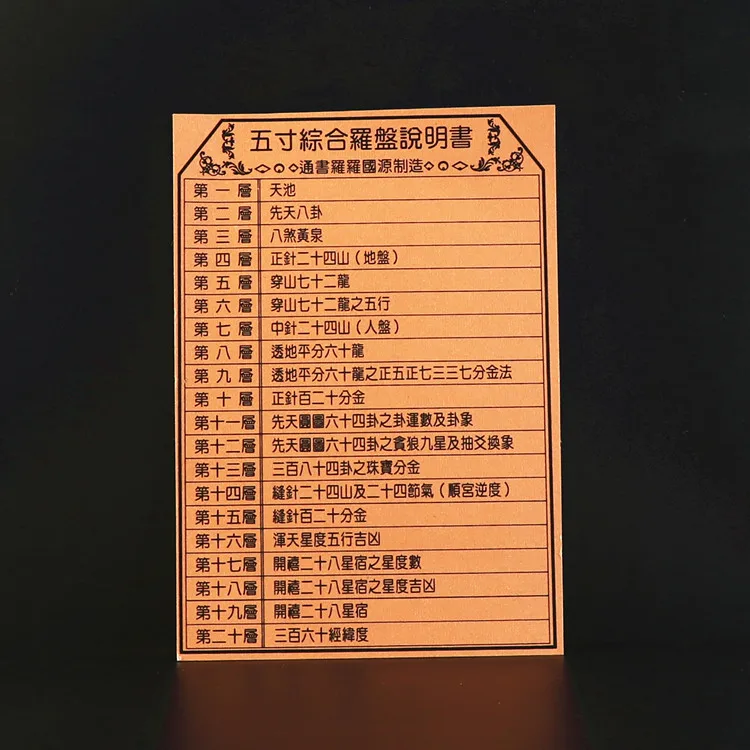 五寸綜合羅盤說明書
通書羅羅國源制造
第一層 天池
第二層 先天八卦
第三層 八煞黃泉
第四層 正針二十四山（地盤）
第五層 穿山七十二龍
第六層 穿山七十二龍之五行
第七層 中針二十四山（人盤）
第八層 透地平分六十龍
第九層 透地平分六十龍之正五正七三三七分金法
第十層 正針百二十分金
第十一層 先天圓圖六十四卦之卦運數及卦象
第十二層 先天圓圖六十四卦之貪狼九星及抽爻換象
第十三層 三百八十四卦之珠寶分金
第十四層 縫針二十四山及二十四節氣（順宮逆度）
第十五層 縫針百二十分金
第十六層 渾天星度五行吉凶
第十七層 開禧二十八星宿之星度數
第十八層 開禧二十八星宿之星度吉凶
第十九層 開禧二十八星宿
第二十層 三百六十經緯度